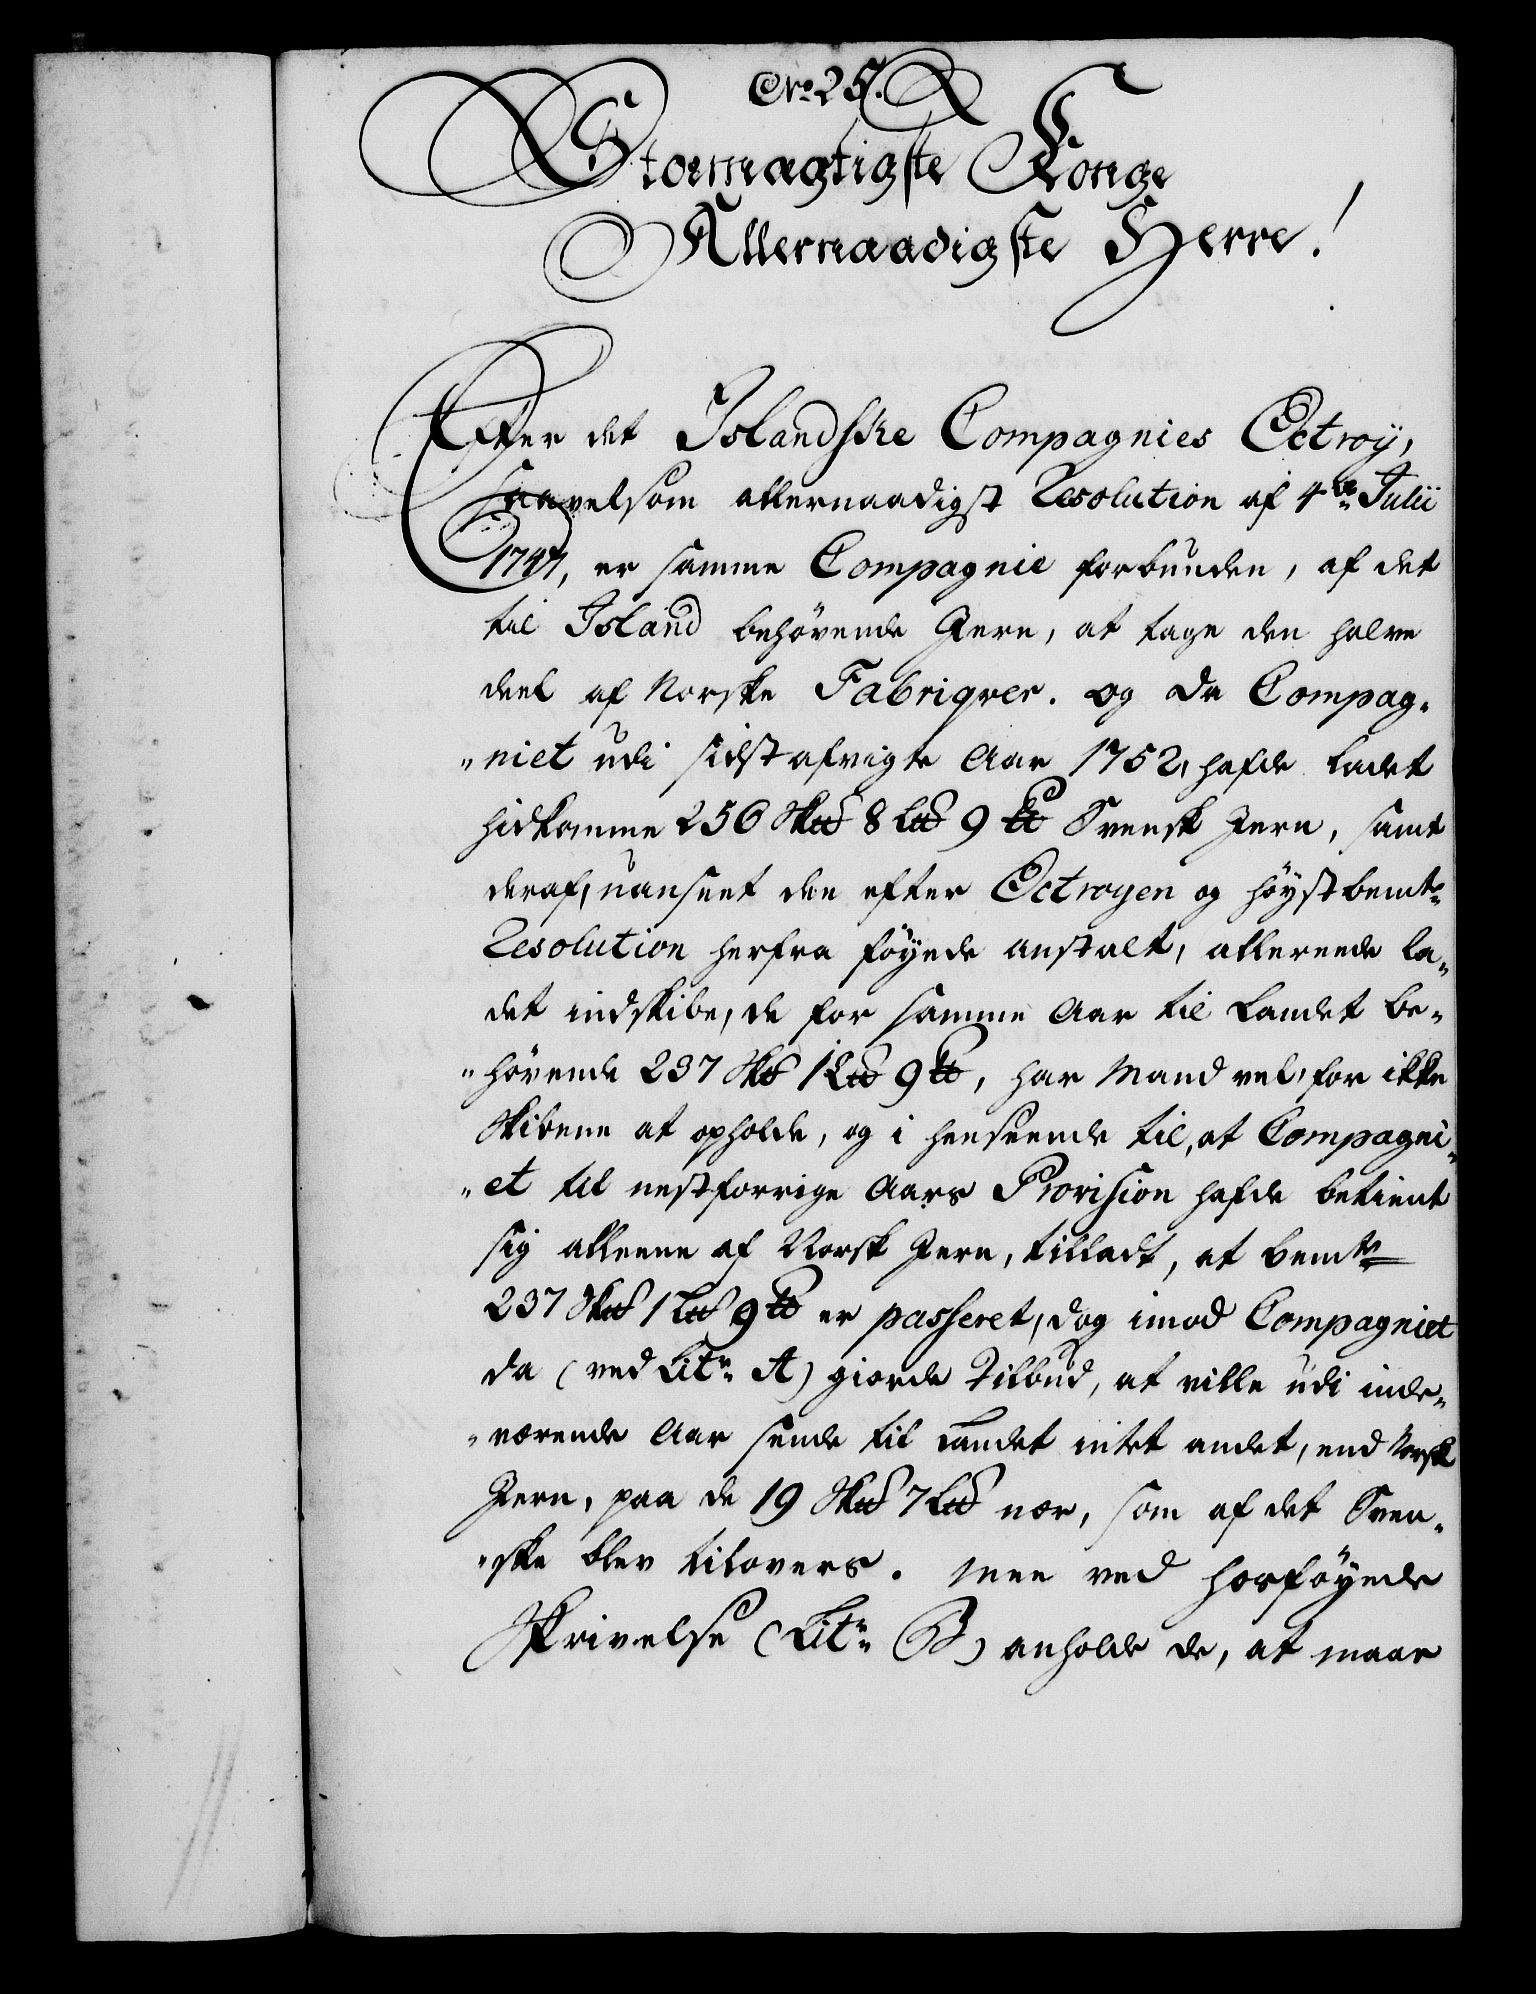 No. 25.
Stormægtigste Konge
Allernaadigste Herre!
Efter det Islandske Compagnies Octroy,
saavelsom allernaadigst Resolution af 4de Julii
1747, er samme Compagnie forbunden, af det
til Island behøvende Jern, at tage den halve
deel af Norske Fabriqver. og da Compag„
„niet udi sidstafvigte Aar 1752, hafde ladet
hidkomme 256 Sk℔ 8 L℔ 9 ℔ Svensk Jern, samt
deraf, uanseet den efter Octroyen og høystbemte
Resolution herfra føyede anstalt, allereede la„
det indskibe, de for samme Aar til Landet be„
„høvende 237 Sk℔ 1 L℔ 9 ℔, har Mand vel, for ikke
Skibene at opholde, og i henseende til, at Compagni„
„et til nestforrige Aars Provision hafde betient
sig alleene af Norsk Jern, tilladt, at bemte
237 Sk℔ 1 L℔ 9 ℔ er passeret, dog imod Compagniet
da (ved Litr. A) giorde Tilbud, at ville udi inde„
„værende Aar sende til Landet intet andet, end Norsk
Jern, paa de 19 Sk℔ 7 L℔ nær, som af det Sven„
„ske blev tilovers. Men ved hosføyede
Skrivelse (Litr. B) anholde de, at maae